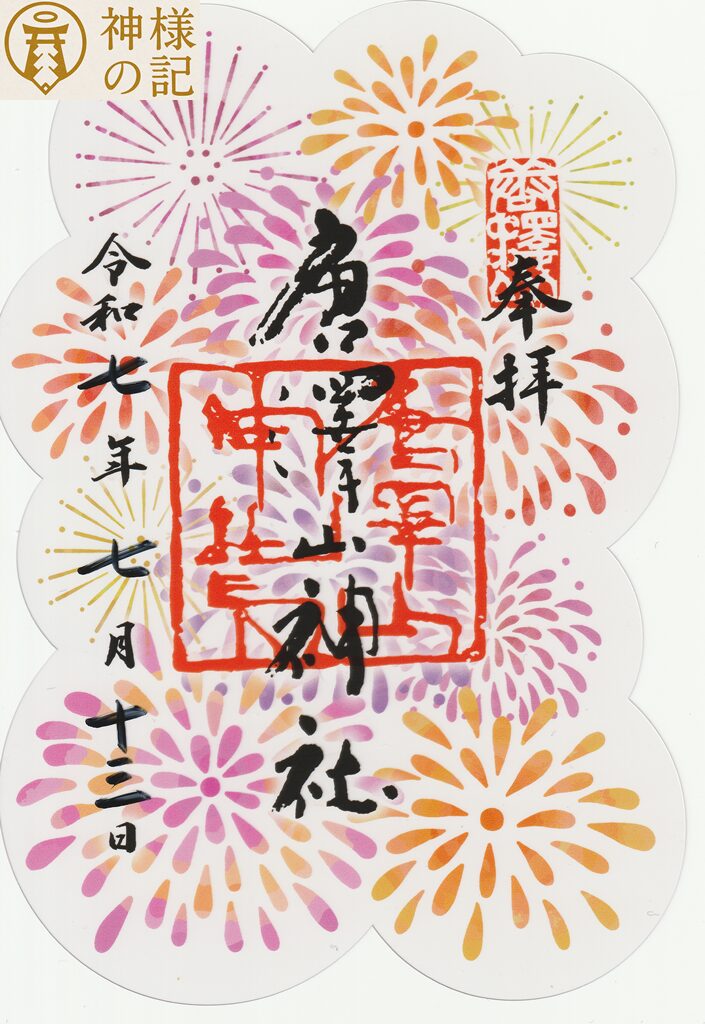 神様
の記
奉拝
唐澤山神社
唐澤山
神社
令和七年七月十三日